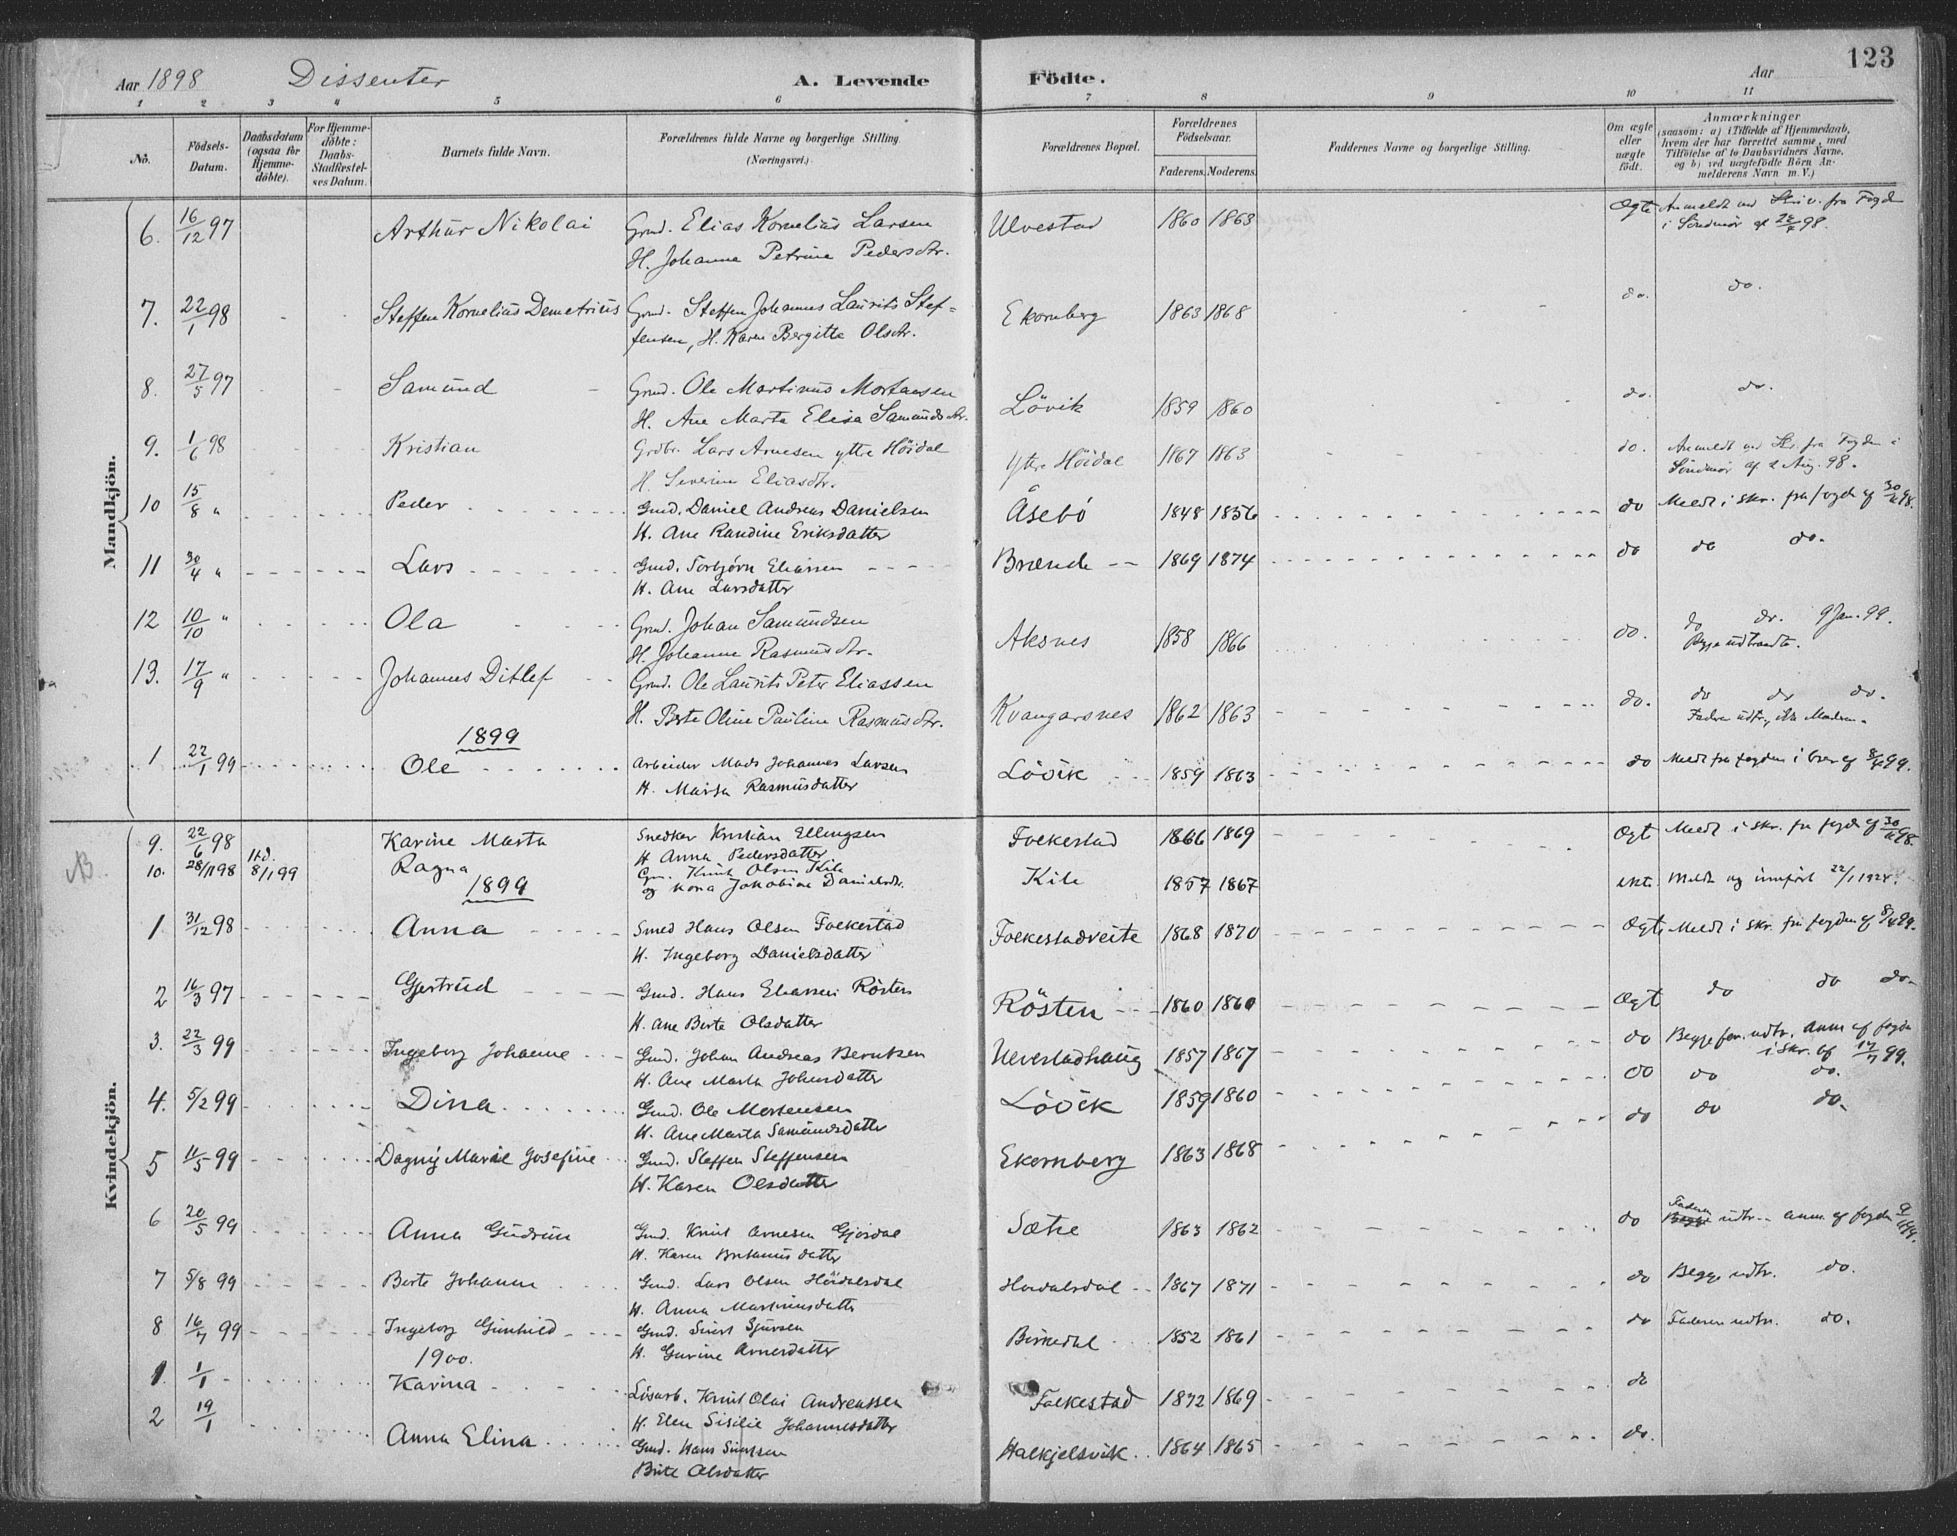 123
Aar 1898 Dissenter A. Levende Födte. Aar
1 2 3 4 5 6 7 8 9 10 11
No. Födsels-Datum. Daabsdatum (ogsaa for Hjemme-döbte). For Hjemme-döbte: Daabs-Stadfæstel-ses Datum. Barnets fulde Navn. Forældrenes fulde Navne og borgerlige Stilling (Næringsvei.) Forældrenes Bopæl. Forældrenes Födselsaar. Faderens. Moderens. Faddernes Navne og borgerlige Stilling. Om ægte eller uægte födt. Anmærkninger (saasom: a) i Tilfælde af Hjemmedaab, hvem der har forrettet samme, med Tilföielse af to Daabsvidners Navne, og b) ved uægtefödte Börn Anmelderens Navn m. V.)
Mandkjön.
6. 16/12 97 Arthur Nikolai Grmd. Elias Kornelius Larsen Ulvestad 1860 1863 Ægte Anmeldt ved Skriv. fra Fogden
H. Johanne Petrine Pedersdtr. i Söndmör af 22/4 98.
7. 22/1 98 Steffen Kornelius Demetrius Grmd. Steffen Johannes Laurits Stef- Ekornberg 1863 1868 do. do.
fensen, H. Karen Bergitte Olsdtr.
8. 27/5 97 Samund Grmd. Ole Martinus Mortensen Lövik 1859 1860 do. do.
H. Ane Marta Elisa Samundsdtr.
9. 1/6 98 Kristian Grdbr. Lars Arnesen ytre Höidal Ytre Höidal 1867 1863 do. Anmeldt ved Skr. fra Fogden i
H. Severine Eliasdtr. Söndmör af 2 Aug. 98.
10 15/8 " Peder Gmd. Daniel Andreas Danielsen Åsebö 1848 1856 do Meldt i skr. fra fogden af 30/11 98.
H. Ane Randine Eriksdatter
11 30/4 " Lars Gmd. Torbjørn Eliassen Brænde 1869 1874 do do do.
H. Ane Larsdatter
12 10/10 " Ola Grmd. Johan Samundsen Aksnes 1858 1866 do. do do. 9 Jan. 99.
H. Johanne Rasmusdtr. Begge udtraadte.
13. 17/9 " Johannes Ditlef Grmd. Ole Laurits Peter Eliassen Kvangarsnes 1862 1863 do. do do do.
H. Berte Oline Pauline Rasmusdtr. Faderen udtr. ikke Moderen.
1899
1 22/1 99 Ole Arbeider Mads Johannes Larsen Lövik 1859 1863 do Meldt fra fogden i brev af 8/4 99.
H. Marta Rasmusdatter
Kvindekjön.
9. 22/6 98 Karine Marta Snedker Kristian Ellingsen Folkestad 1866 1869 Ægt Meldt i skr. fra fogden af 30/11 98.
H Anna Pedersdatter
10. 28/11 98 8/1 99 Ragna Gm. Knut Olsen Kile Kile 1857 1867 ekte. Meldt og innført 22/1 1924.
og kona Jakobine Danielsdtr.
1899
1 31/12 98 Anna Smed Hans Olsen Folkestad Folkestadveite 1868 1870 Ægte Meldt i skr. fra fogden af 8/4 99.
H. Ingeborg Danielsdatter
2 16/3 97 Gjertrud Gmd. Hans Eliassen Rösten Rösten 1860 1860 Ægt do do do
H. Ane Berte Olsdatter
3. 22/3 99 Ingeborg Johanne Gmd. Johan Andreas Berntsen Ulvestadhaug 1857 1867 do Begge for. udtr. anm. af fogden
H. Ane Marta Johnsdatter i skr. af 17/7 99.
4. 5/2 99 Dina Gmd. Ole Mortensen Lövik 1859 1860 do do do.
H. Ane Marta Samundsdatter
5 11/5 99 Dagny Marie Josefine Gmd. Steffen Steffensen Ekornberg 1863 1868 do do do.
H. Karen Olsdatter
6 20/5 99 Anna Gudrun Gmd. Knut Arnesen Gjordal Sætre 1863 1862 do Faderen udtr. anm. af fogden
H. Karen
7 5/8 99 Berte Johanne Gmd. Lars Olsen Höidalsdal Hoidalsdal 1867 1871 do Begge udtr. do.
H. Anna Martinusdatter
8 16/7 99 Ingeborg Gunhild Gmd. Sivert Sjursen Birkedal 1852 1861 do Faderen udtr. do.
H. Gurine Arnesdatter
1900.
1. 1/1 Karina Lösarb. Knut Olai Andreassen Folkestad 1872 1869 do
H. Elen Sisilie Johannesdatter
2 19/1 Anna Elina Gmd. Hans Sivertsen Halkjelsvik 1864 1865 do.
Birte Olsdatter